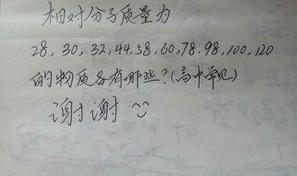 相对分子质量为
28, 30, 32, 44, 58, 60, 78, 98, 100, 120
的物质各有哪些?(高中常见)
谢谢